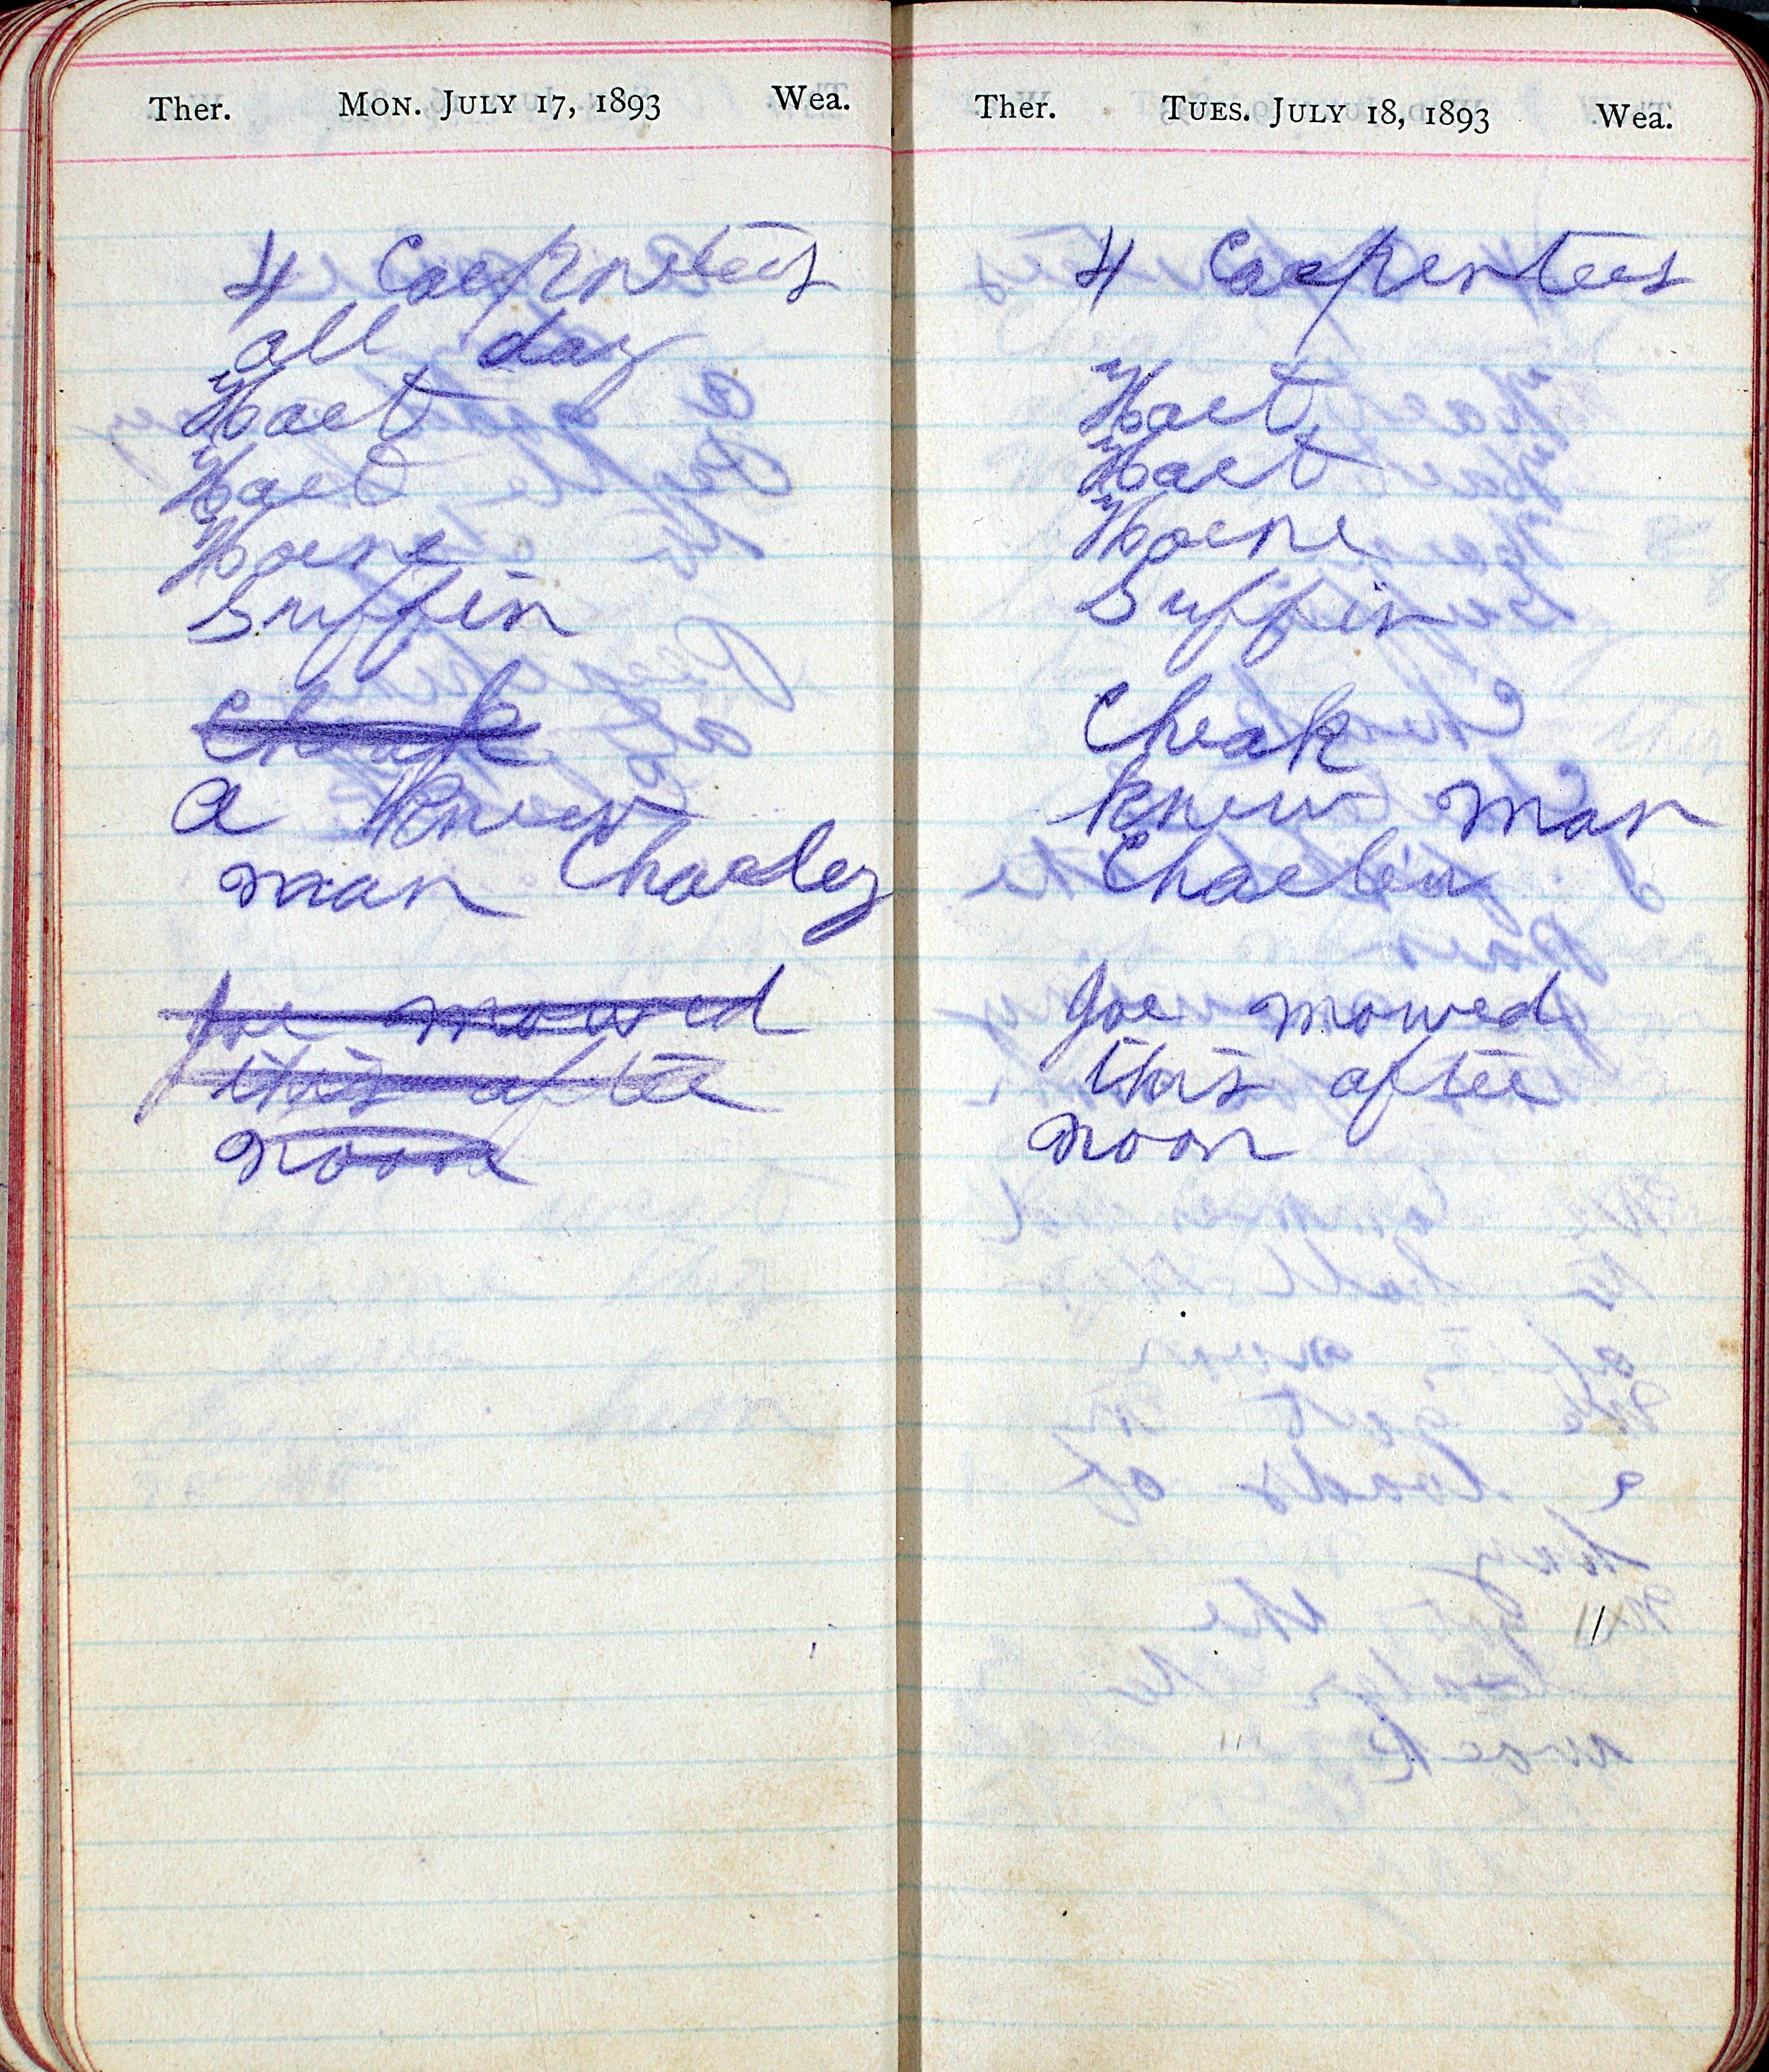 Ther. MON. JULY 17, 1893 Wea.
4 Carpnters
all day
Hart
Hart
Horne
Suffin
Cheak
a knew
man Charley
Joe mowed
this after
noon
Ther. TUES. JULY 18, 1893 Wea.
4 Carpenters
Hart
Hart
Horne
Suffin
Cheak
knew man
Joe mowed
this after
noon